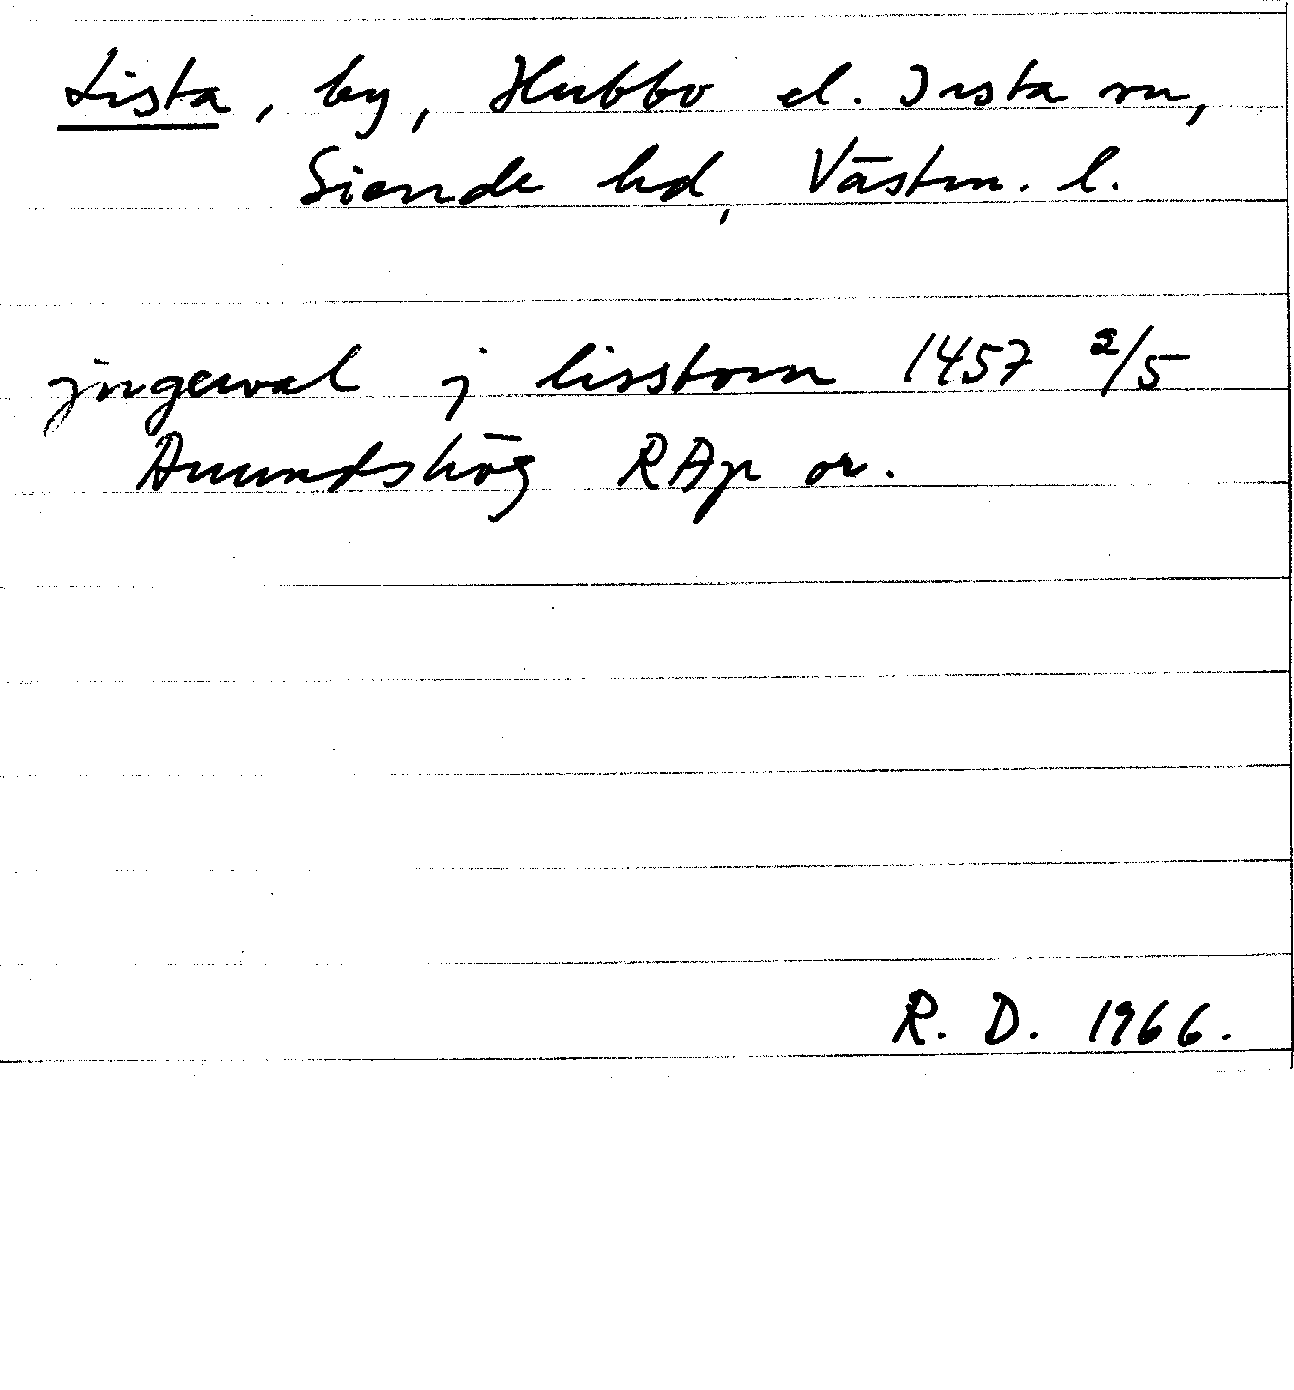 Lista, by, Hubbo el. Irsta sn,
Siende hd, Västm. l.
jngewal j lisstom 1457 2/5
Anundshög RAp or.
R. D. 1966.